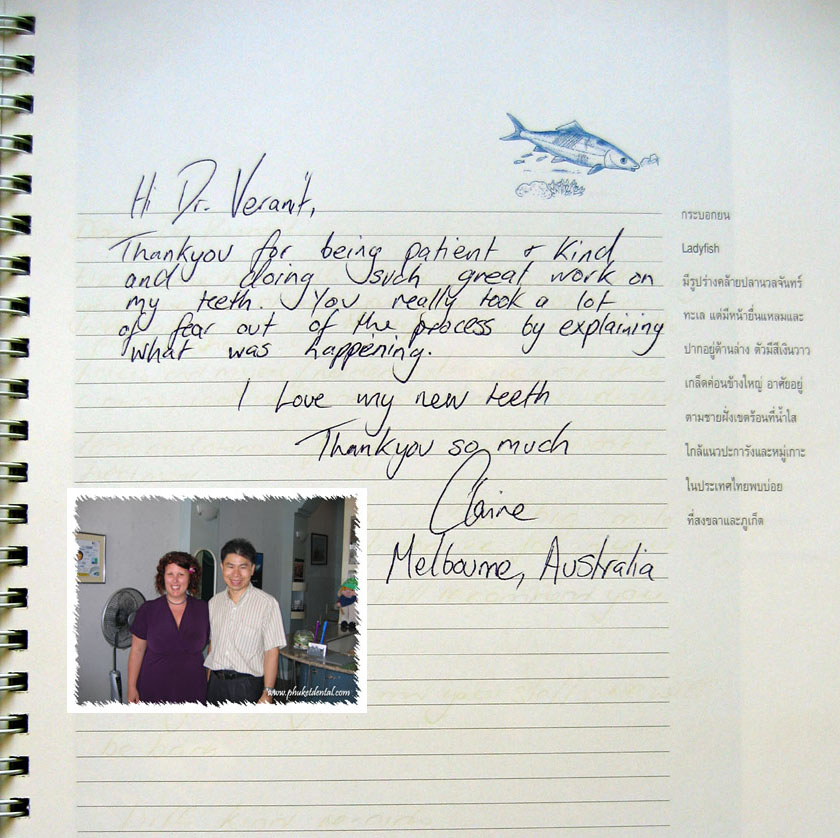 Hi Dr. Veranit,
Thankyou for being patient & kind
and doing such great work on
my teeth. You really took a lot
of fear out of the process by explaining
what was happening.
I love my new teeth
Thankyou so much
Claire
Melbourne, Australia
กระบอกยน
Ladyfish
มีรูปร่างคล้ายปลานวลจันทร์
ทะเล แต่มีหน้ายื่นแหลมและ
ปากอยู่ด้านล่าง ตัวมีสีเงินวาว
เกล็ดค่อนข้างใหญ่ อาศัยอยู่
ตามชายฝั่งเขตร้อนที่น้ำใส
ใกล้แนวปะการังและหมู่เกาะ
ในประเทศไทยพบบ่อย
ที่สงขลาและภูเก็ต
www.phuketdental.com